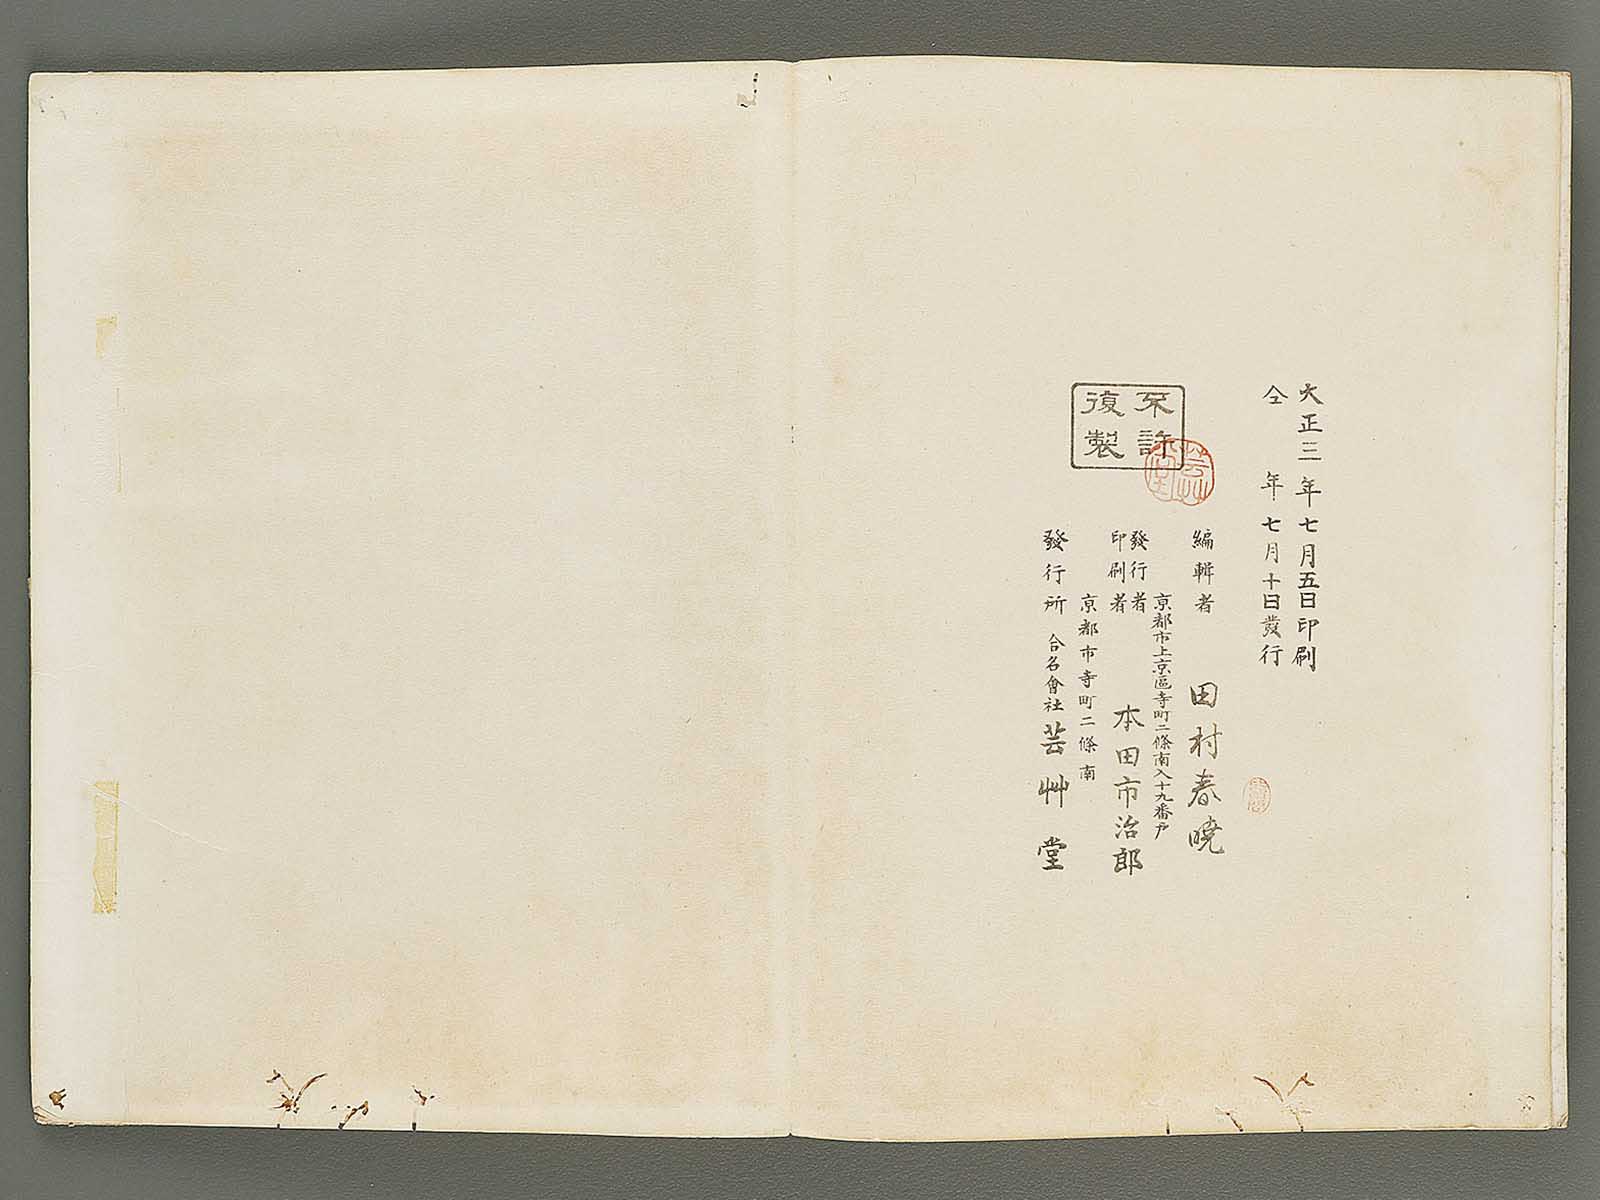 大正三年七月五日印刷
仝年七月十日發行
不許
復製
芸艸堂
編輯者 田村春曉
京都市上京區寺町二條南入十九番戸
發行者
印刷者 本田市治郎
京都市寺町二條南
發行所 合名會社 芸艸堂